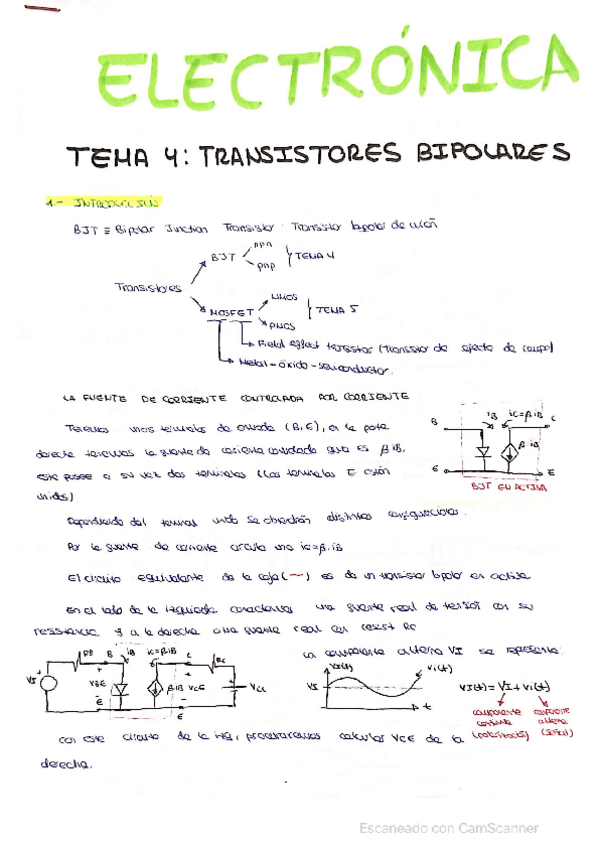 ELECTRÓNICA
TEMA 4: TRANSISTORES BIPOLARES
1.- INTRODUCCIÓN
BJT ≡ Bipolar Junction Transistor: Transistor bipolar de unión
npn
BJT
TEMA 4
pnp
Transistores
NMOS
MOSFET
TEMA 5
PMOS
Field effect (Transistor de efecto de campo)
Metal-óxido-semiconductor.
LA FUENTE DE CORRIENTE CONTROLADA POR CORRIENTE
Tenemos unos terminales de entrada (B,E), en la parte
derecha tenemos la fuente de corriente controlada que es βiB,
este posee a su vez dos terminales (Los terminales E están
unidos)
B iB iC=βiB C
βiB
E E
BJT EN ACTIVA
Dependiendo del terminal unido se obtendrán distintas configuraciones.
Por la fuente de corriente circula una ic=β·iB
El circuito equivalente de la caja (---) es de un transistor bipolar en activa
En el lado de la izquierda conectamos una fuente real de tensión con su
resistencia y a la derecha otra fuente real con resist Rc
La componente alterna VI se representa:
RB B iB iC=βiB C RC
VI VBE βiB VCE VCC
E E
VI(t) vi(t)
VI
t
VI(t) = VI + vi(t)
componente continua (polarización)
componente alterna (señal)
Con este circuito de la izq, procuraremos calcular VCE de la
derecha.
Escaneado con CamScanner